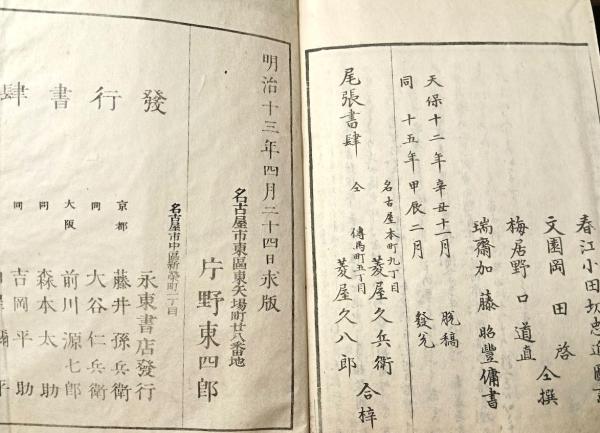 春江小田切忠近圖画
文園岡田啓
仝撰
梅居野口道直
瑞齋加藤昭豐傭書
天保十二年辛丑十一月脫稿
同十五年甲辰二月發兌
尾張書肆
名古屋本町九丁目
菱屋久兵衛
仝傳馬町五丁目
菱屋久八郎
合梓
明治十三年四月二十四日求版
名古屋市東區東矢場町廿八番地
片野東四郎
名古屋市中區新榮町二丁目
永東書店發行
發行書肆
京都
藤井孫兵衛
同
大谷仁兵衛
大阪
前川源七郎
同
森本太助
同
吉岡平助